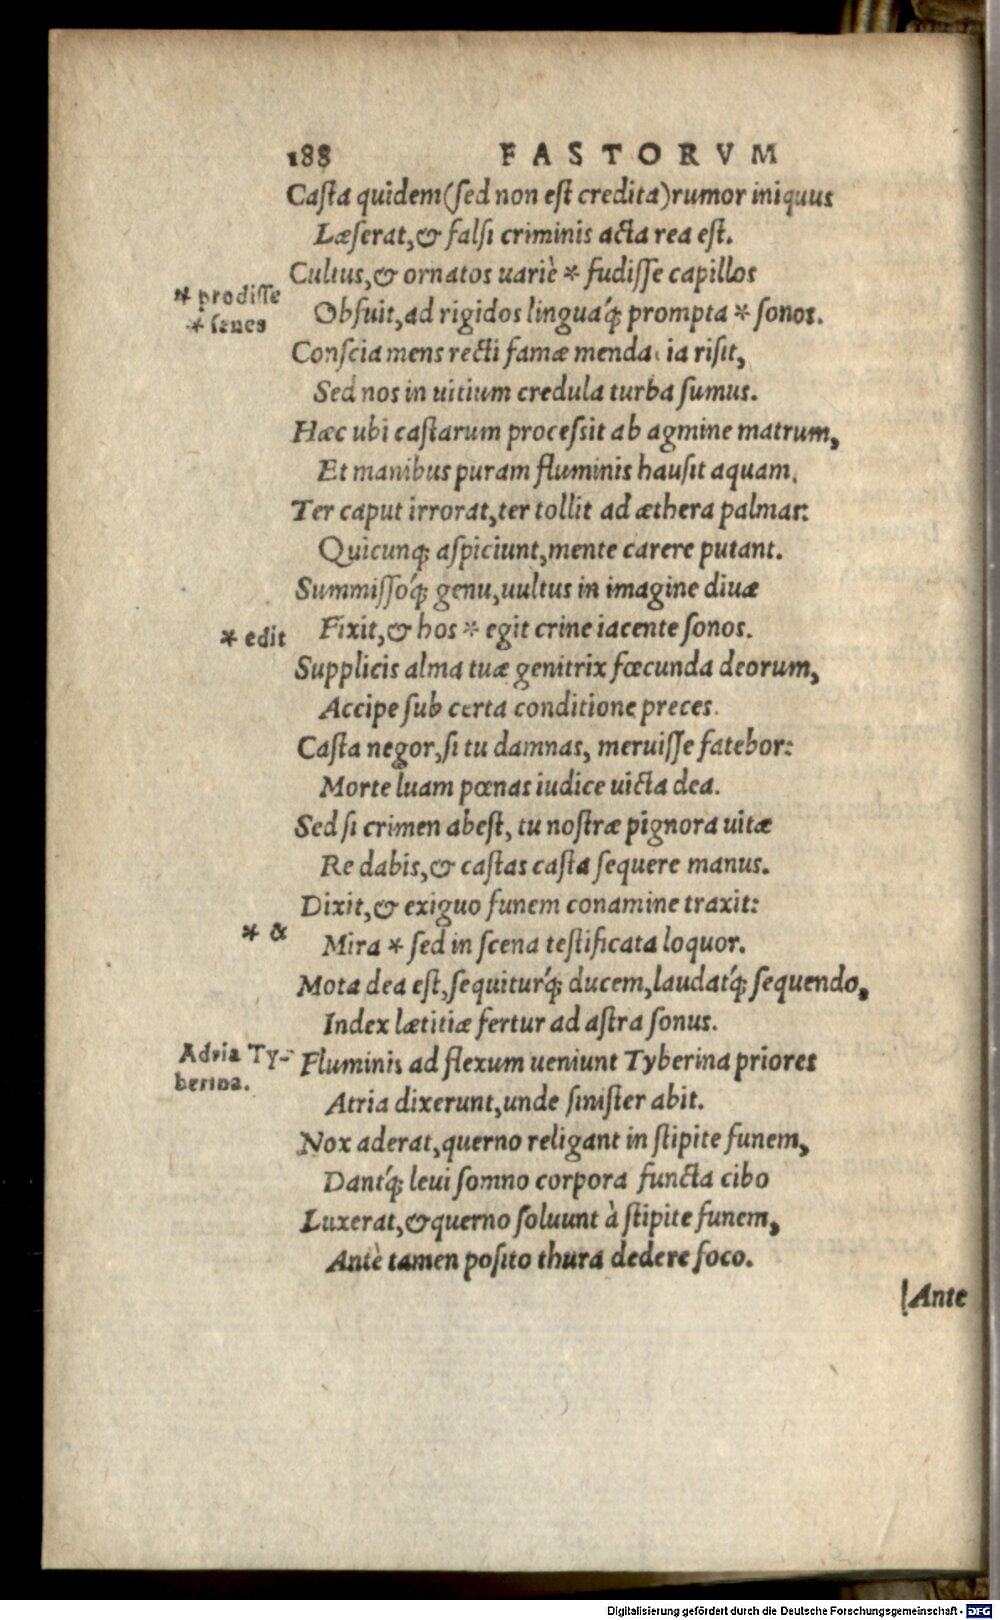 188 FASTORVM
Casta quidem (sed non est credita) rumor iniquus
Læserat, & falsi criminis acta rea est.
Cultus, & ornatos uariè * fudisse capillos
* prodisse
Obfuit, ad rigidos linguáq; prompta * sonos.
* senes
Conscia mens recti famæ menda ia risit,
Sed nos in uitium credula turba sumus.
Hæc ubi castarum processit ab agmine matrum,
Et manibus puram fluminis hausit aquam,
Ter caput irrorat, ter tollit ad æthera palmas:
Quicunq; aspiciunt, mente carere putant.
Summissóq; genu, uultus in imagine diuæ
Fixit, & hos * egit crine iacente sonos.
* edit
Supplicis alma tuæ genitrix fœcunda deorum,
Accipe sub certa conditione preces.
Casta negor, si tu damnas, meruisse fatebor:
Morte luam pœnas iudice uicta dea.
Sed si crimen abest, tu nostræ pignora uitæ
Re dabis, & castas casta sequere manus.
Dixit, & exiguo funem conamine traxit:
* &
Mira * sed in scena testificata loquor.
Mota dea est, sequiturq́; ducem, laudatq́; sequendo,
Index lætitiæ fertur ad astra sonus.
Adria Ty-
berina.
Fluminis ad flexum ueniunt Tyberina priores
Atria dixerunt, unde sinister abit.
Nox aderat, querno religant in stipite funem,
Dantq́; leui somno corpora functa cibo
Luxerat, & querno soluunt à stipite funem,
Antè tamen posito thura dedere foco.
Ante
Digitalisierung gefördert durch die Deutsche Forschungsgemeinschaft - DFG